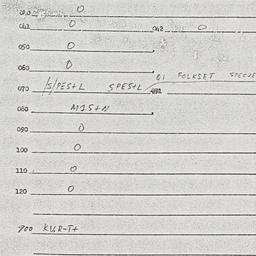 040 0
041 0 042 0
050 0
060 0
01 FOLKSET
070 /S/PES+L SPES+L
080 MIS+N
090 0
100 0
110 0
120 0
900 KUR-T+